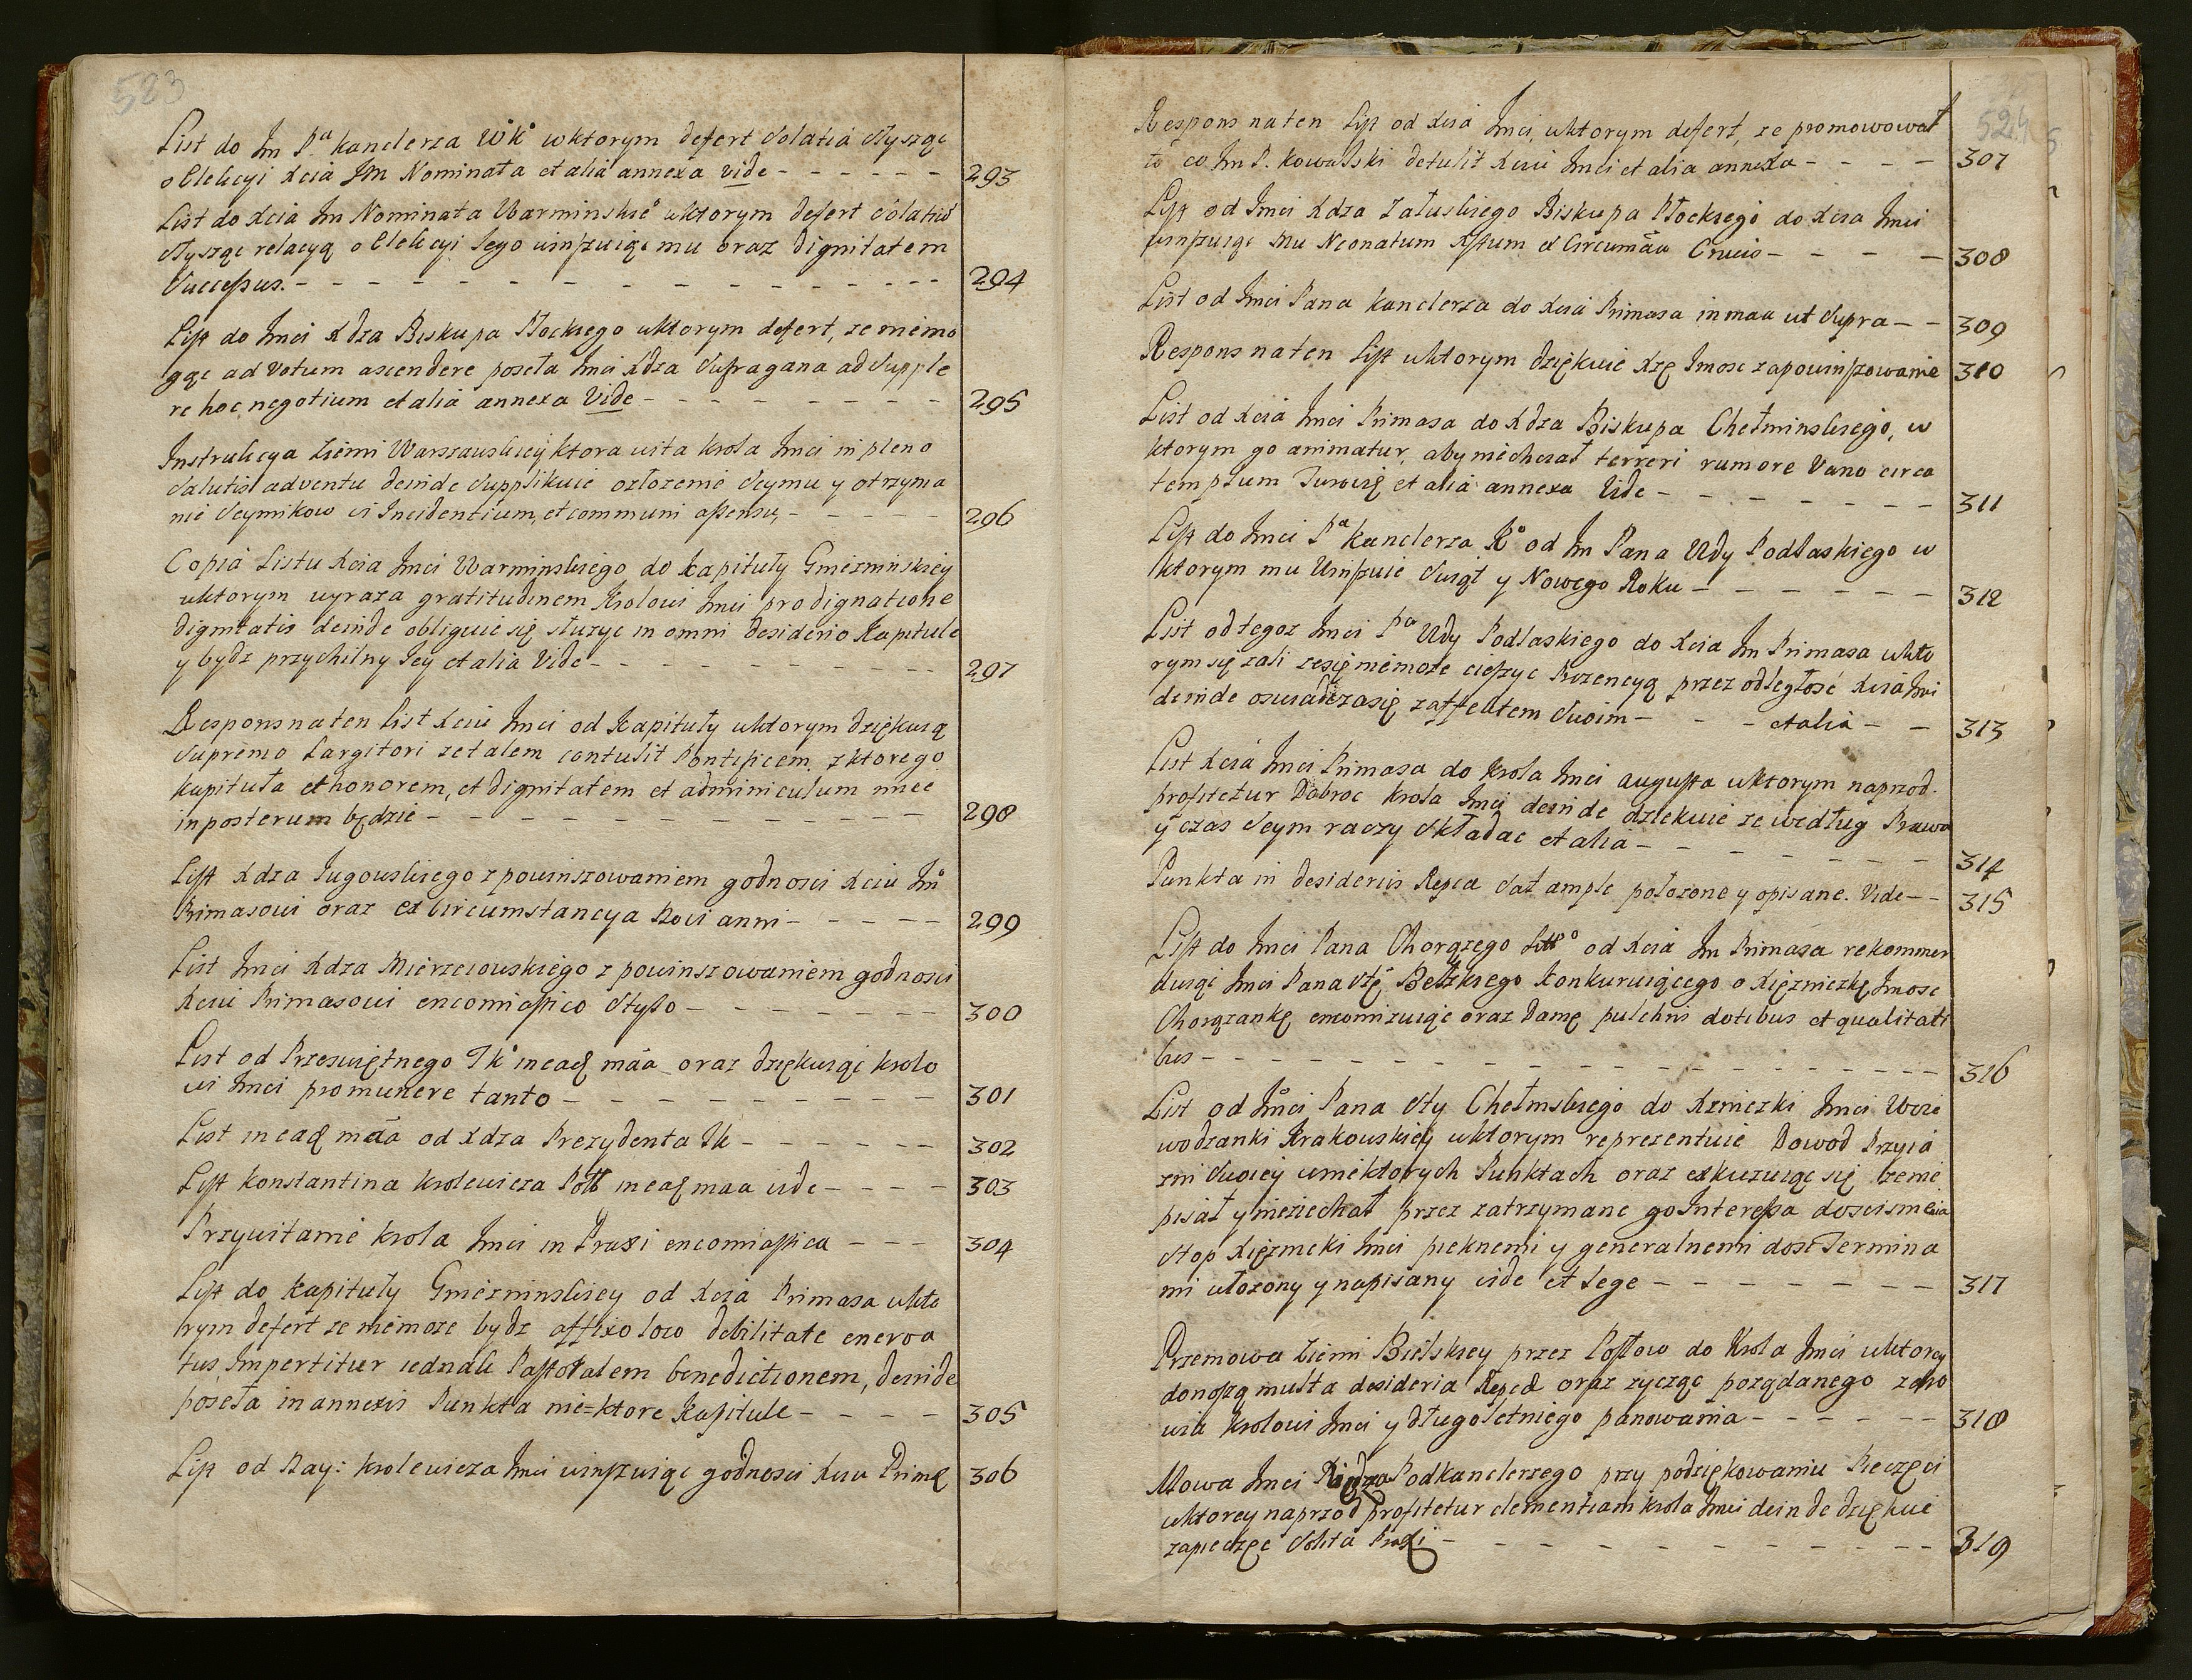 523
List do Jm Pa kanclerza WKo wktorym defert Solatia słysząc
o Elekcyi Xcia Jm Nominata et alia annexa vide - - - - - - 293
List do Xcia Jm Nominata Warminskio wktorym defert
słysząc relacyą o Elekcyi Jego winszuiąc mu oraz dignitatem
Successus - - - - - - - - - - - - 294
List do Jmci Xdza Biskupa Płockiego wktorym defert, ze niemo
gąc ad Votum ascendere poseła Jmci Xdza Sufragana ad Supple
re hoc negotium et alia annexa Vide - - - - - - - 295
Instrukcya Ziemi Warszawskiey ktora wita krola Jmci in pleno
Salutis adventu deinde Supplikuie ozłozenie Seymu y otrzyma
nie Seymikow Incidentium, et communi assensu, - - - - - - 296
Copia Listu Xcia Jmci Warminskiego do kapituły Gniezninskiey
wktorym wyraza gratitudinem Krolowi Jmci pro dignatione
dignitatis deinde obliguie się słuzyc in omni desiderio Kapitule
y bydz przychilny Jey et alia Vide - - - - - - - - - - 297
Respons na ten List Xciu Jmci od Kapituły wktorym dziękuią
Supremo Largitori ze talem contulit Pontificem, z ktorego
kapituła et honorem, et dignitatem et adminiculum miec
in posterum będzie - - - - - - - - - - 298
List Xdza Jugowskiego z powinszowaniem godnosci Xciu Jmo
Primasowi oraz ex circumstancya Novi anni - - - - - 299
List Jmci Xdza Mierzeiowskiego z powinszowaniem godnosci
Xciu Primasowi encomiastico stylo - - - - - - - 300
List od Przeswiętnego Tko in eaq maa oraz dziękuiąc krolo
wi Jmci pro munere tanto - - - - - - - - - 301
List in eaq maa od Xdza Prezydenta Tk - - - - - - 302
List konstantina krolewicza Poll in eaq maa vide - - - - 303
Przywitanie krola Jmci in Praxi encomiastica - - - 304
List do kapituły Gniezninskiey od Xcia Primasa wkto
rym defert ze niemoze bydz affixo loco debilitate enerva
tus, Impertitur iednak Pastoralem benedictionem, deinde
poseła in annexis Punkta nie=ktore Kapitule - - - - 305
List od Nay: krolewicza Jmci winszuiąc godnosci Xciu Primę 306
524
Respons na ten List od Xcia Jmci, wktorym defert, ze promowował
to co Jm P. Kowalski detulit Xciu Jmci et alia annexa - - - - 307
List od Jmci Xdza Załuskiego Biskupa Płockiego do Xcia Jmci
winszuiąc Mu Neonatum Xstum ex Circumāa Crucis - - - - 308
List od Jmci Pana kanclerza do Xcia Primasa in maa ut Supra - - 309
Respons na ten List wktorym dziękuie Xzę Jmosc za powinszowanie 310
List od Xcia Jmci Primasa do Xdza Biskupa Chełminskiego, w
ktorym go animatur, aby niechciał terreri rumore Vano circa
templum Turowię et alia annexa Vide - - - - - - - 311
List do Jmci Pa kanclerza Ko od Jm Pana Wdy Podlaskiego w
ktorym mu Winszuie Swiąt y Nowego Roku - - - - - - 312
List od tegoz Jmci Pa Wdy Podlaskiego do Xcia Jm Primasa wkto
rym się zali ze się niemoze cieszyc Prezencyą przez odległość Xcia Jmci
deinde oswiadcza się z affektem Swoim - - - et alia - - 313
List Xcia Jmci Primasa do krola Jmci augusta wktorym naprzod
profitetur Dobroc krola Jmci deinde dziekuie ze według Prawa
y czas Seym raczy składac et alia - - - - - - - 314
Punkta in desideriis Repca Sat ample położone y opisane. Vide - - 315
List do Jmci Pana Chorązego Litto od Xcia Jm Primasa rekommen
duiąc Jmci Pana Stę Bełzkiego konkuruiącego o Xięzniczkę Jmosc
Chorązankę encomizuiąc oraz Damę pulchris dotibus et qualitati
bus - - - - - - - - - - - - - - 316
List od Jmci Pana Sty Chełmskiego do Xzniczki Jmci Woie
wodzanki Krakowskiey wktorym reprezentuie Dowod Przyia
zni Swoiey wniektorych Punktach oraz exkuzuiąc się ze nie
pisał y niziechał przez zatrzymane go Interessa do scisnienia
stop Xięzniczki Jmci pieknemi y generalnemi dosc Termina
mi ułozony y napisany vide et lege - - - - - - - 317
Przemowa Ziemi Bielskiey przez Posłow do Krola Jmci wktorey
donoszą multa desideria Repcae oraz zycząc poządanego zdro
wia krolowi Jmci y długoletniego panowania - - - - - - 318
Mowa Jmci Xiędza Podkanclerzego przy podziękowaniu Pieczęci
wktorey naprzod profitetur clementiam krola Jmci deinde dziękuie
za pieczęc Solita Praxi - - - - - - - - - - 319